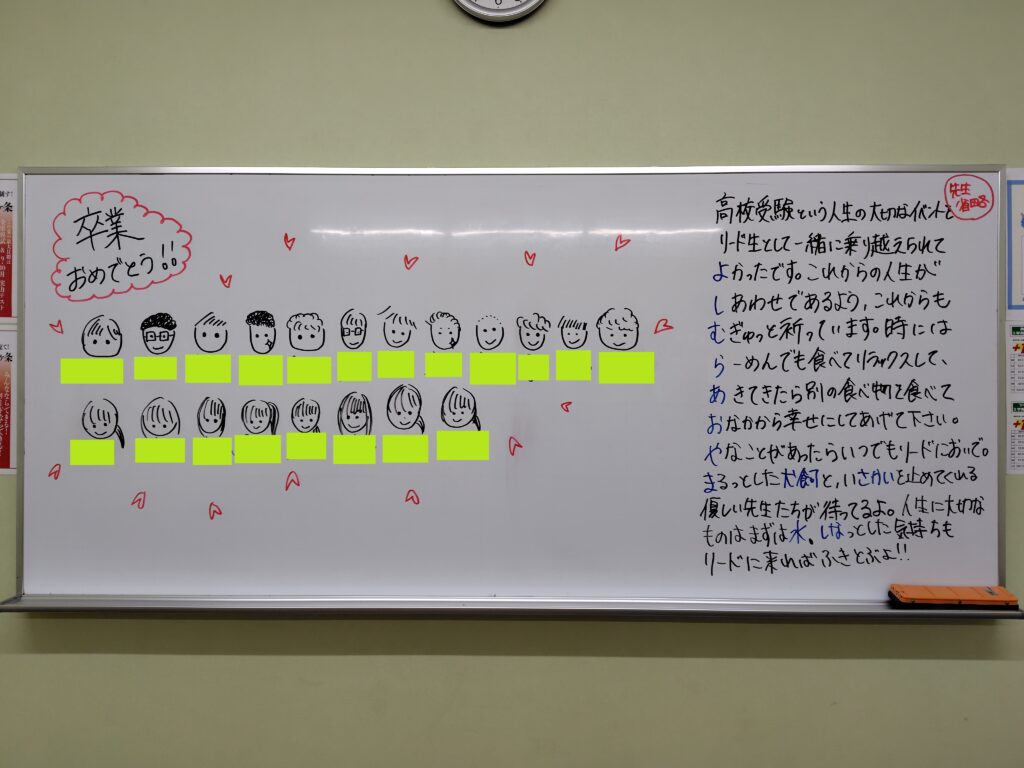 卒業
おめでとう!!
先生
省略
高校受験という人生の大切なイベントを
リード生として一緒に乗り越えられて
よかったです。これからの人生が
しあわせであるよう、これからも
むぎゅっと祈っています。時には
らーめんでも食べてリラックスして、
あきてきたら別の食べ物を食べて
おなかから幸せにしてあげて下さい。
やなことがあったらいつでもリードにおいで。
まるっとした犬飼と、いさかいを止めてくれる
優しい先生たちが待ってるよ。人生に大切な
ものはまずは水。しなっとした気持ちも
リードに来ればふきとぶよ!!